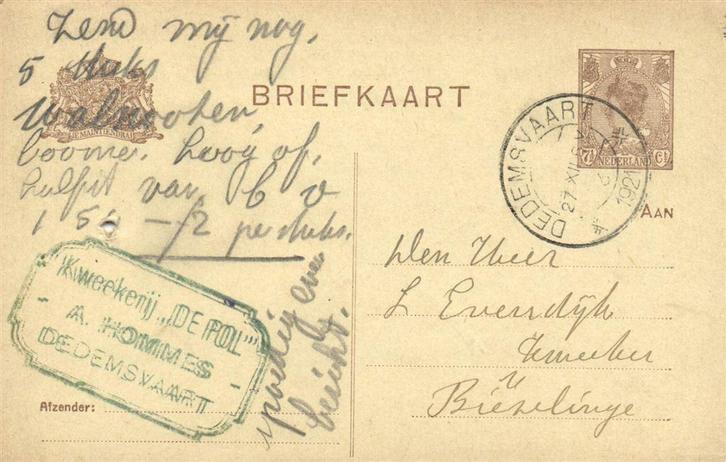 Zend mij nog
5 stuks
walnooten
boomen. hoog of
halfst van 6 v
1 50 — /2 per stuks.
spoedig even
bericht.
JE MAINTIENDRAI
BRIEFKAART
7½ Ct
NEDERLAND
DEDEMSVAART
27 XII
1921
AAN
Den Heer
L Everdijk
kweeker
Biezelinge
Kweekerij „DE POL”
A. HOMMES
DEDEMSVAART
Afzender: